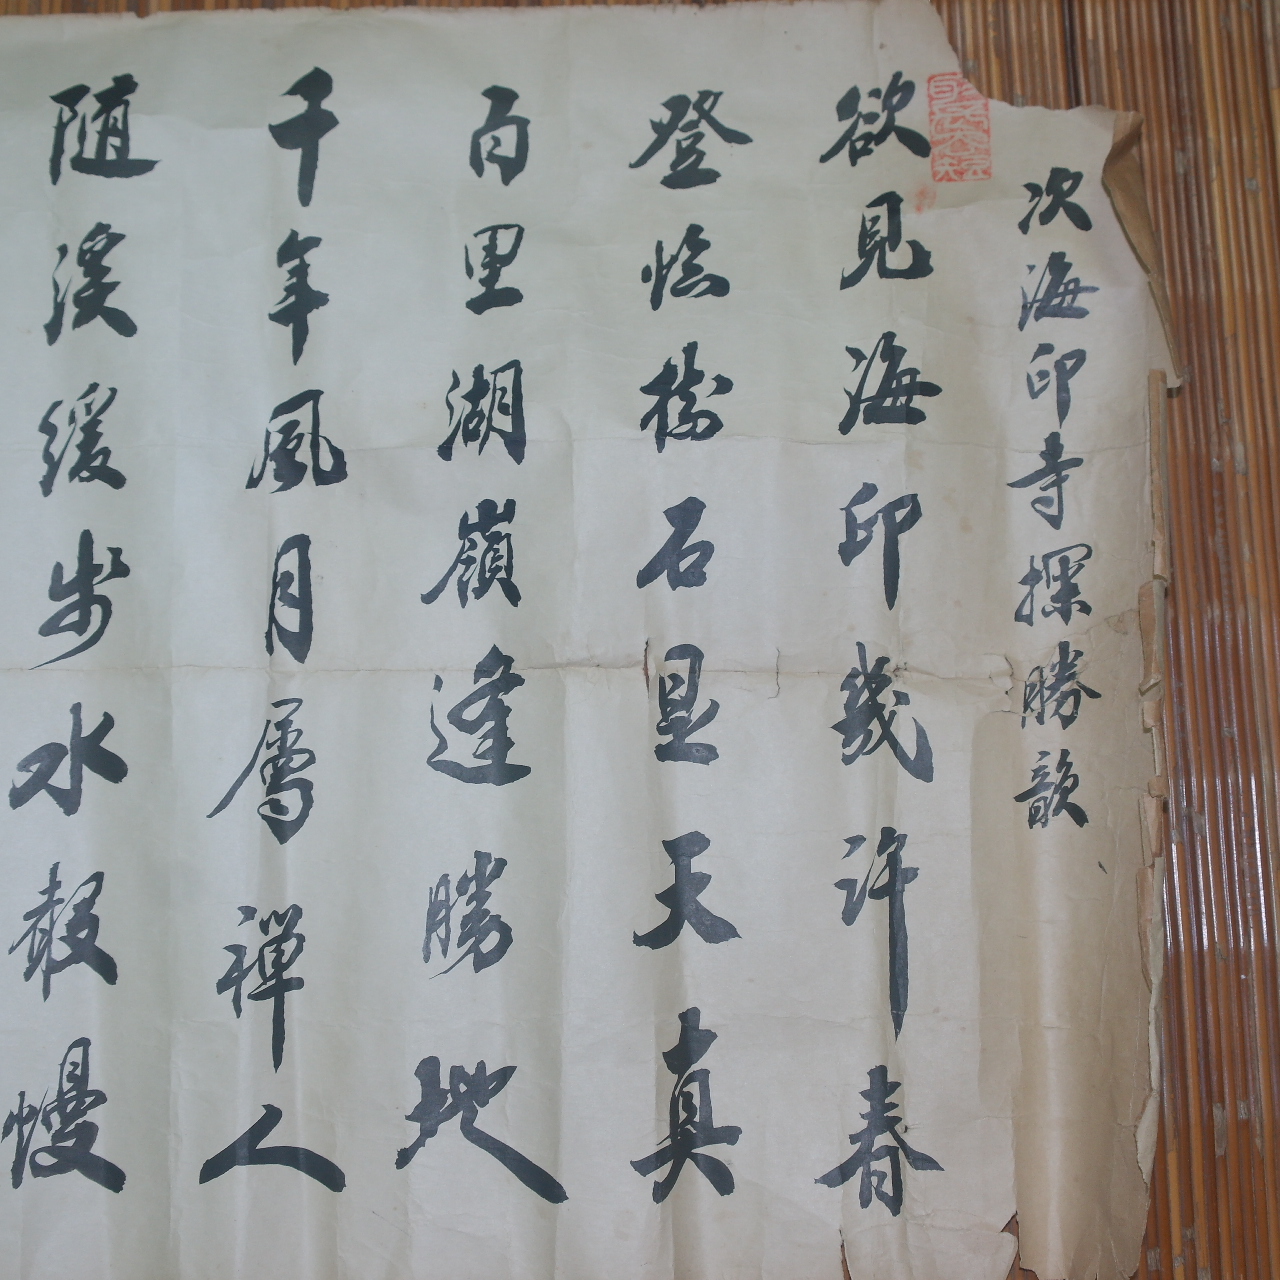 次海印寺探勝韻
欲見海印幾許春
登臨樹石显天真
百里湖嶺逢勝地
千年風月屬禪人
随溪緩步水聲慢